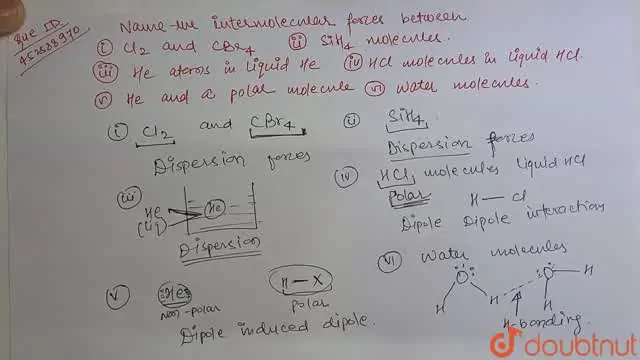 Que ID
452538970
Name the intermolecular forces between
(i) Cl2 and CBr4 (ii) SiH4 molecules.
(iii) He atoms in liquid He (iv) HCl molecules in liquid HCl.
(v) He and a polar molecule (vi) water molecules.
(i) Cl2 and CBr4
Dispersion forces
(ii) SiH4
Dispersion forces
(iii) He
(liq)
He
Dispersion
(iv) HCl, molecules liquid HCl
Polar
H — Cl
Dipole Dipole interactions
(v) He
non-polar
H — X
polar
Dipole induced dipole.
(vi) Water molecules
O O H
H H H
H-bonding
doubtnut